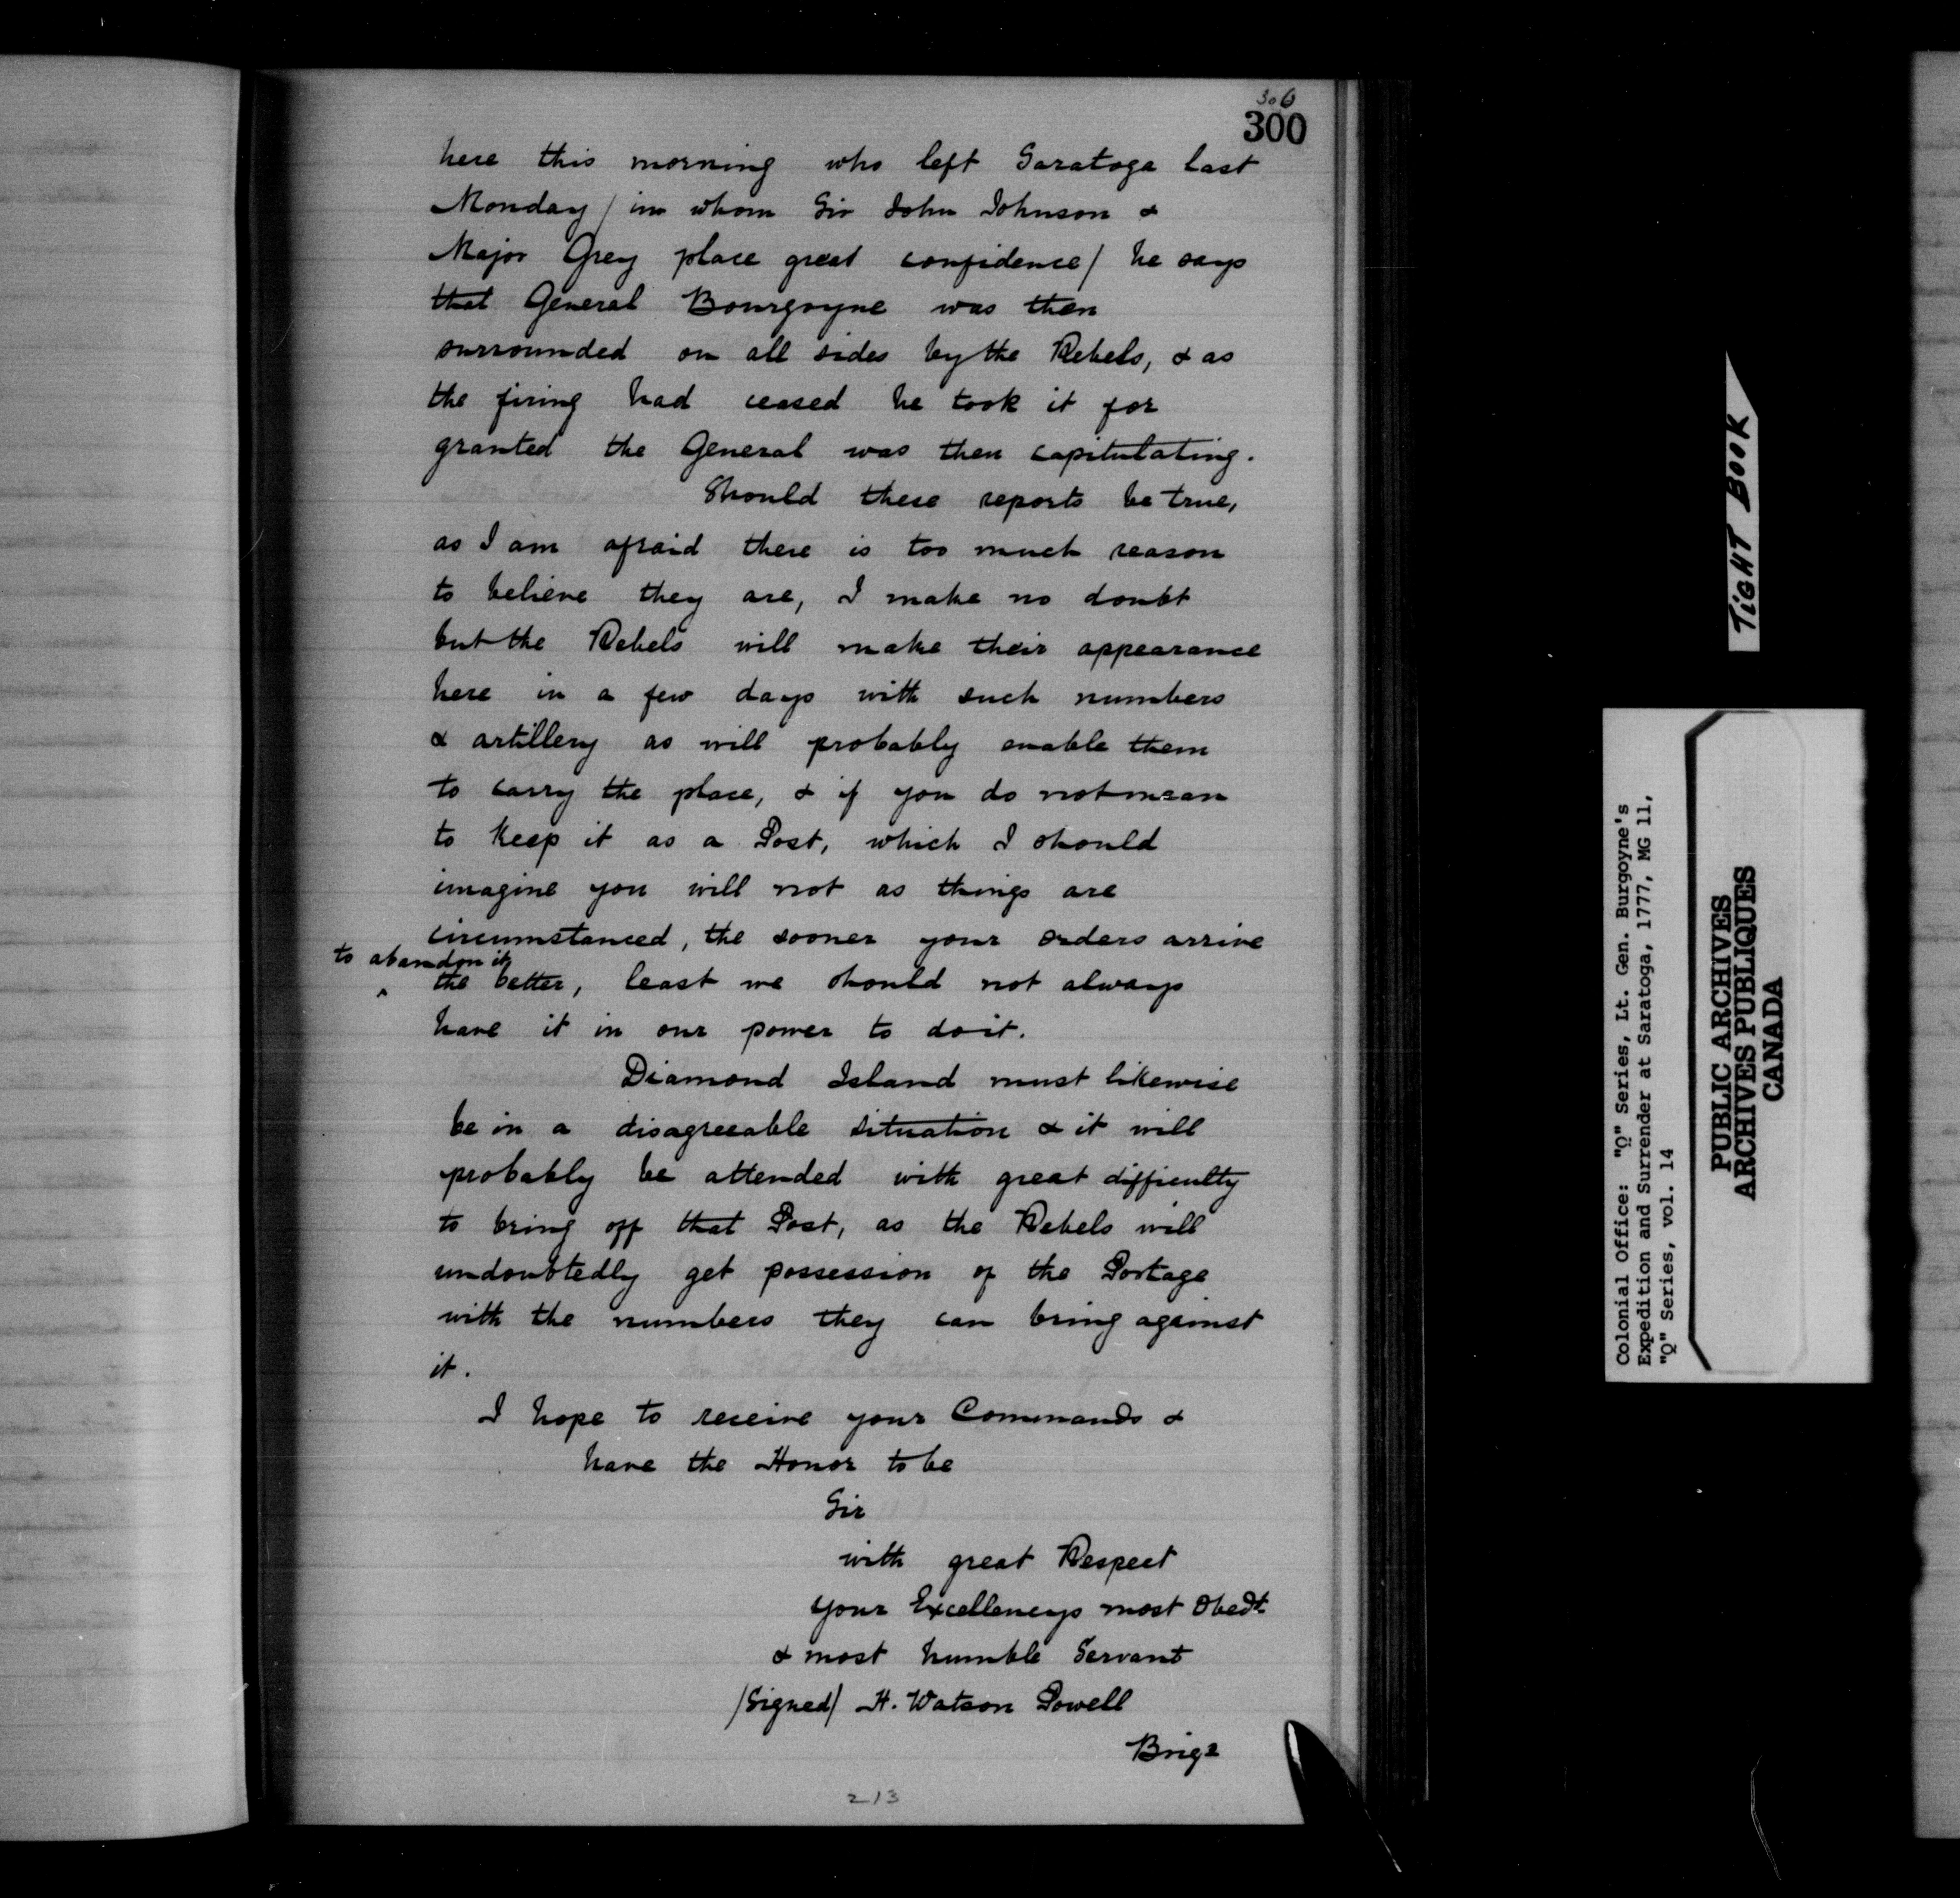 306
300
here this morning who left Saratoga last
Monday / in whom Sir John Johnson &
Major Grey place great confidence / he says
that General Bourgoyne was then
surrounded on all sides by the Rebels, & as
the firing had ceased he took it for
granted the General was then capitulating.
Should these reports be true,
as I am afraid there is too much reason
to believe they are, I make no doubt
but the Rebels will make their appearance
here in a few days with such numbers
& artillery as will probably enable them
to carry the place, & if you do not mean
to keep it as a Post, which I should
imagine you will not as things are
circumstanced, the sooner your orders arrive
to abandon it
^ the better, least we should not always
have it in our power to do it.
Diamond Island must likewise
be in a disagreeable situation & it will
probably be attended with great difficulty
to bring off that Post, as the Rebels will
undoubtedly get possession of the Portage
with the numbers they can bring against
it.
I hope to receive your Commands &
have the Honor to be
Sir
with great Respect
your Excellencys most Obedt
& most humble Servant
/Signed/ H. Watson Powell
Brigr
213
TIGHT BOOK
Colonial Office: "Q" Series, Lt. Gen. Burgoyne's
Expedition and Surrender at Saratoga, 1777, MG 11,
"Q" Series, vol. 14
PUBLIC ARCHIVES
ARCHIVES PUBLIQUES
CANADA